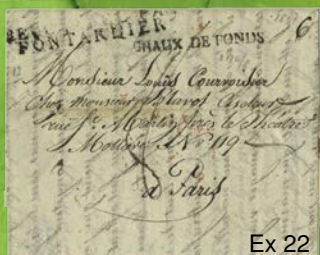 PONTARLIER
CHAUX DE FONDS
6
Monsieur Louis Courvoisier
Chez monsieur
rue St. Martin près le Théatre
Moliere No 119
à Paris
Ex 22